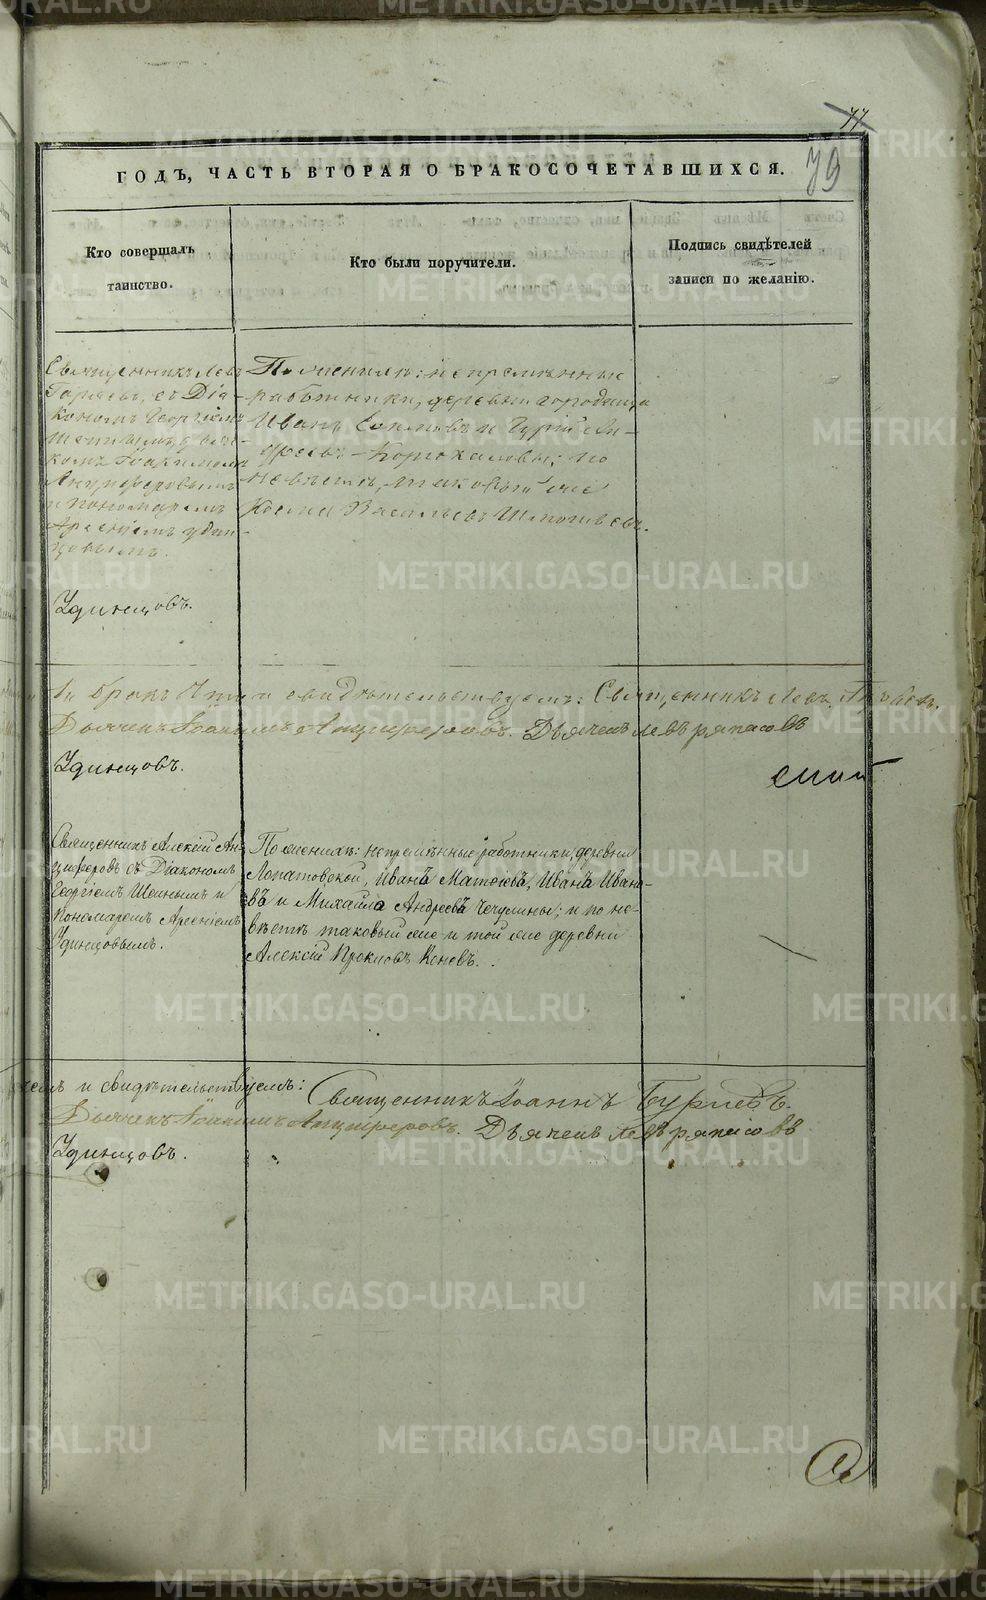 77
79
ГОДЪ, ЧАСТЬ ВТОРАЯ О БРАКОСОЧЕТАВШИХСЯ.
Кто совершалъ
таинство.
Кто были поручители.
Подпись свидѣтелей
записи по желанію.
Священникъ Левъ
съ Діа-
кономъ Георгіемъ
Іоакимомъ
Анциферовымъ
и Пономаремъ
Арсеніемъ Удин-
цовымъ.
По женихѣ: непремѣнные
работники, деревни Городища
Иванъ и Гурій Ан-
дреевъ Коркохаловы; по
невѣстѣ, таковый же
Косма Васильевъ
Удинцовъ.
бракъ свидѣтельствуемъ: Священникъ Левъ
Дьячекъ Іоакимъ Анциферовъ. Дьячекъ Левъ
Удинцовъ.
Священникъ Алексій Ан-
циферовъ съ Діакономъ
Георгіемъ Шеинымъ и
Пономаремъ Арсеніемъ
Удинцовымъ.
По женихѣ: непремѣнные работники, деревни
Лопатовской, Иванъ Матвѣевъ, Иванъ Ивано-
въ и Михайла Андреевъ Чечулины; и по не-
вѣстѣ таковый же и той же деревни
Алексій Прокловъ Коневъ.
и свидѣтельствуемъ: Священникъ Іоаннъ
Дьячекъ Іоакимъ Анциферовъ. Дьячекъ Левъ
Удинцовъ.
METRIKI.GASO-URAL.RU